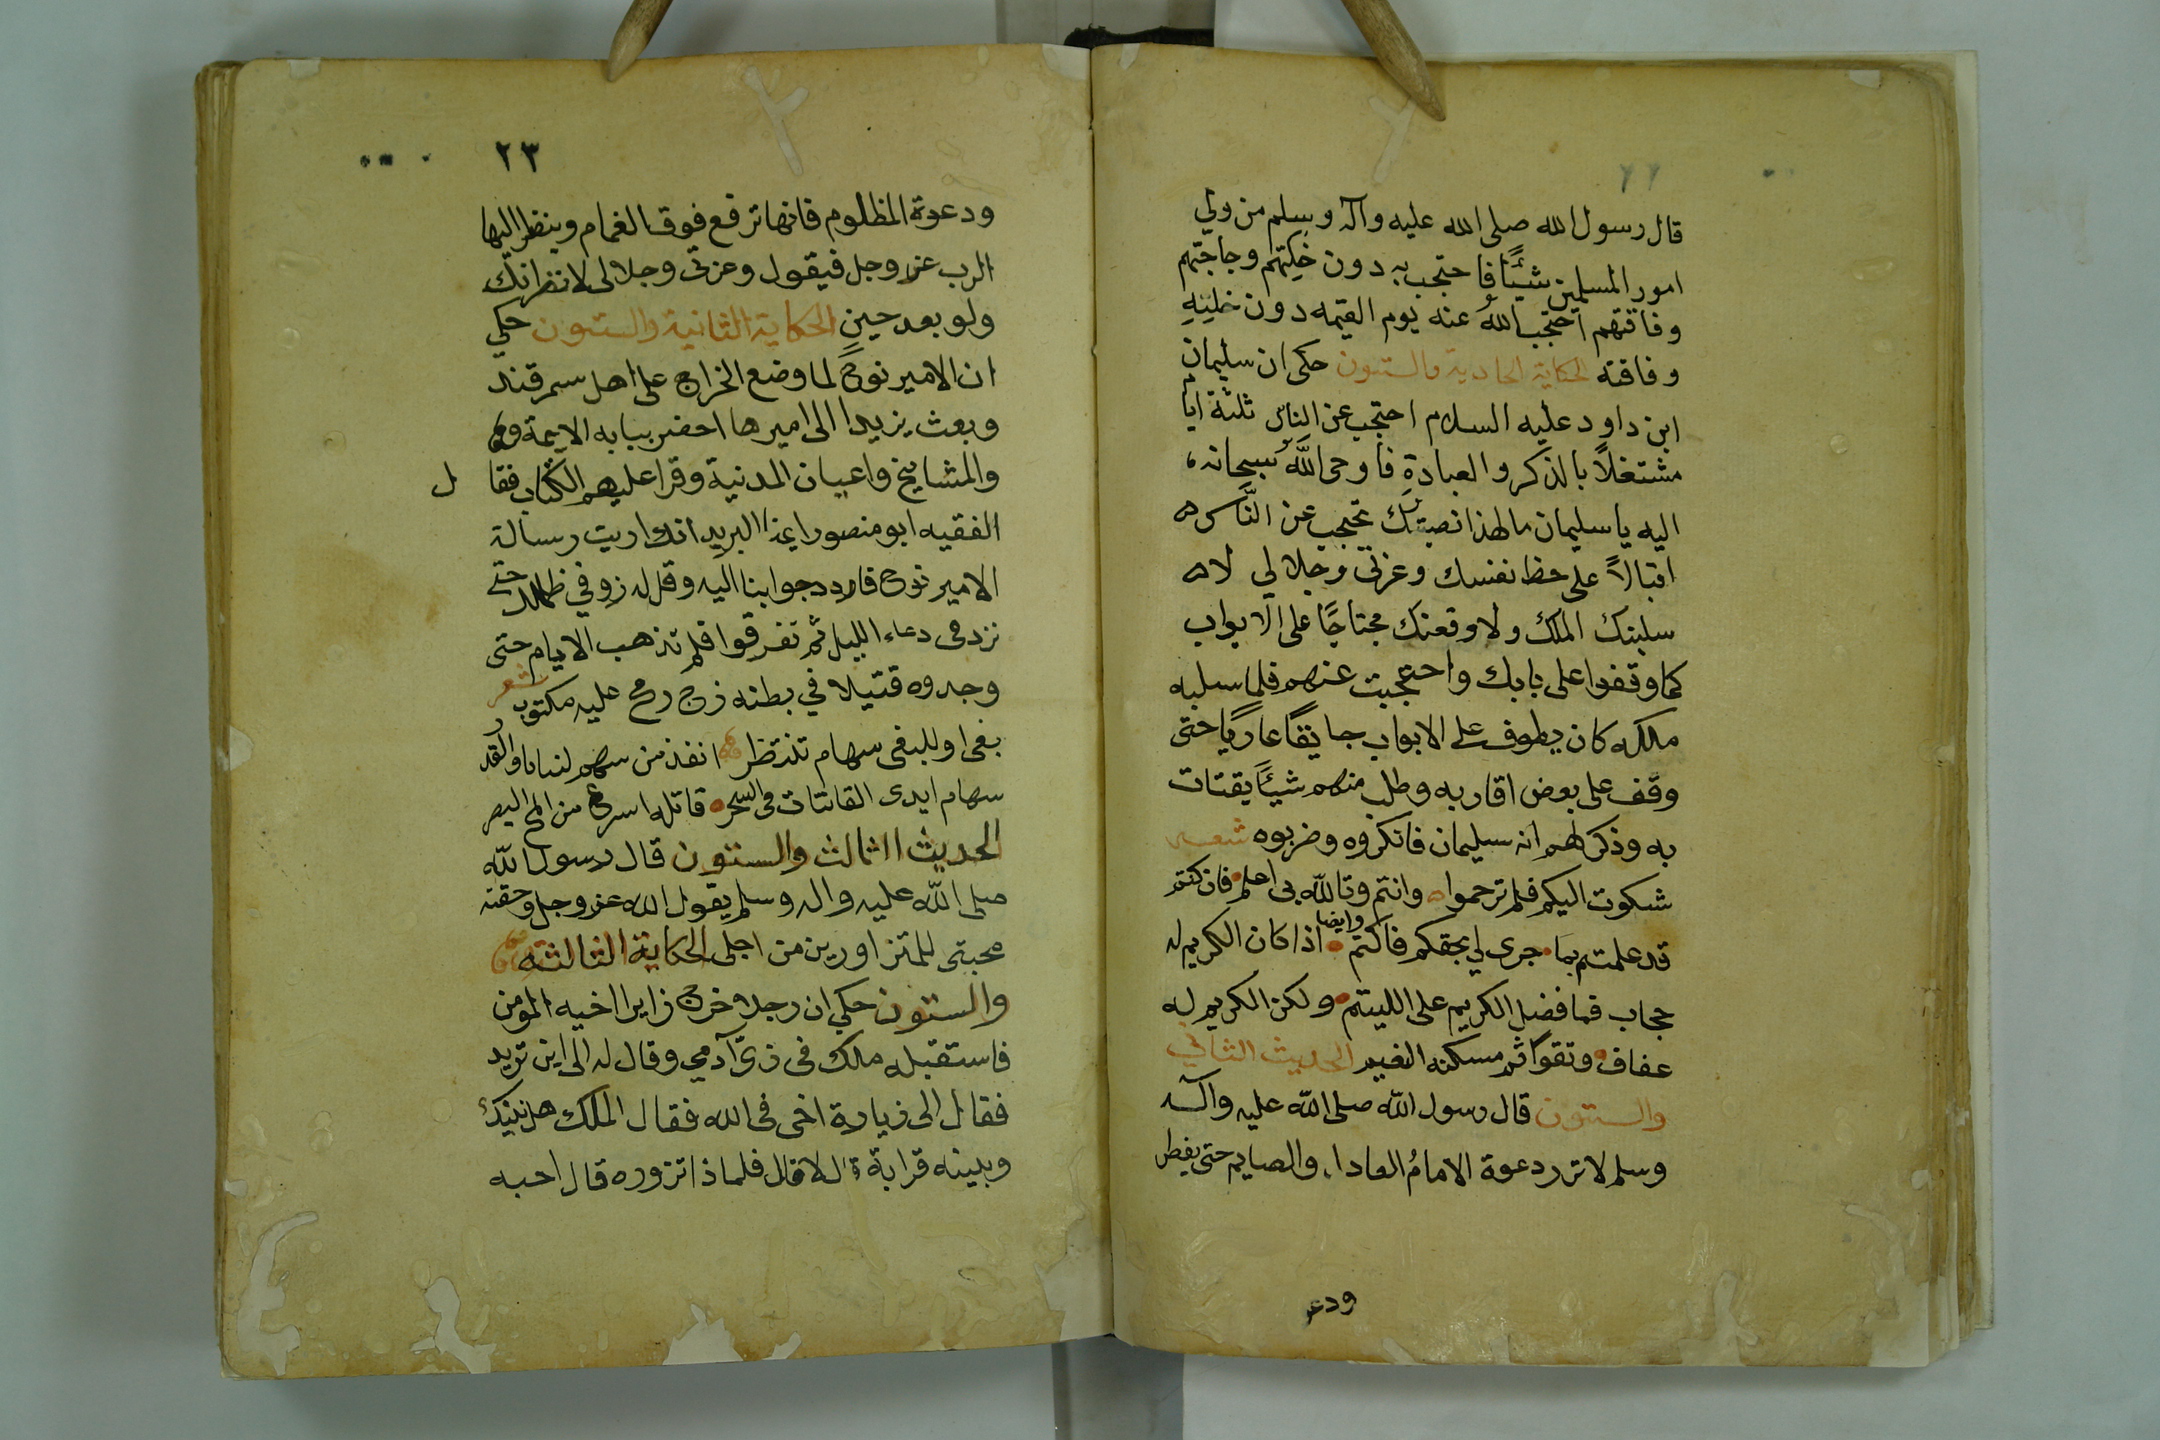 ٢٢
قال رسول الله صلى الله عليه وآله وسلم من ولي
امور المسلمين شيئًا فاحتجب به دون خلتهم وحاجتهم
وفاقتهم احتجب اللهُ عنه يوم القيمه دون خلتِهِ
وفاقته الحكاية الحادية والستون حكى ان سليمان
ابن داود عليه السلام احتجب عن الناس ثلثة ايام
مشتغلاً بالذكر والعبادةِ فاوحى اللَّهُ سبحانه
اليه يا سليمان ما لهذا نصبتك تحتجب عن النَّاس
اقبالاً على حظ نفسك وعزتي وجلالي لا
سلبنك الملك ولاوقعنك محتاجًا على الابواب
كما وقفوا على بابك واحتجبت عنهم فلما سلبه
ملكه كان يطوف على الابواب جايعًا عاريًا حتى
وقف على بعض اقاربه وطلب منهم شيئًا يقتات
به وذكر لهم انه سليمان فانكروه وضربوه شعر
شكوت اليكم فلم ترحموا وانتم وتالله بي اعلم فان كنتم
قد علمتم بمَا جرى لي بحقكم فاكتم وايضا اذا كان الكريم له
حجاب فما فضل الكريم على اللييم ولكن الكريم له
عفاف وتقوا ثم مسكنه النعيم الحديث الثاني
والستون قال رسول الله صلى الله عليه وآله
وسلم لا ترد دعوة الامامُ العادل والصايم حتى يفطر
ودعو
٢٣
ودعوة المظلوم فانها ترفع فوق الغمام وينظر اليها
الرب عز وجل فيقول وعزتي وجلالى لانظرانّك
ولو بعد حين الحكاية الثانية والستون حكي
ان الامير نوحً لما وضع الخراج على اهل سمرقند
وبعث يزيدا الى اميرها احضر ببابه الايمة
والمشايخ واعيان المدنية وقرا عليهم الكتاب فقال
الفقيه ابو منصور ايهذا البريد انك اديت رسالة
الامير نوح فاردد جوابنا اليه وقل له زد في ظلمك حتى
نزد فى دعاء الليل ثم تفرقوا فلم تذهب الايام حتى
وجدوه قتيلا في بطنه زج رمح عليه مكتوب شعر
بغى وللبغى سهام تنتظر انفذ من سهم
سهام ايدى القانتات فى السحر
الحديث الثالث والستون قال رسول الله
صلى الله عليه واله وسلم يقول الله عز وجل وحقت
محبتى للمتزاورين من اجلى الحكاية الثالثه
والستون حكي ان رجلا خرج زايرا اخيه المومن
فاستقبله ملك فى زىّ آدمي وقال له الى اين تريد
فقال الى زيارة اخى فى الله فقال الملك هل بينك
وبينه قرابة قال لا قال فلماذا تزوره قال احبه